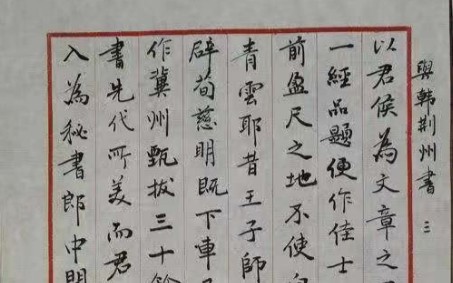 與韩荆州書 三
以君侯為文章之
一經品題便作佳士
前盈尺之地不使
青雲耶昔王子師
辟荀慈明既下車
作冀州甄拔三十
書先代所美而君
入為秘書郎中間